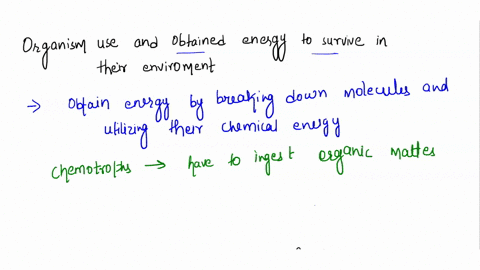 Organism use and obtained energy to survive in
their enviroment
→ Obtain energy by breaking down molecules and
utilizing their chemical energy
Chemotrophs → have to ingest organic matter